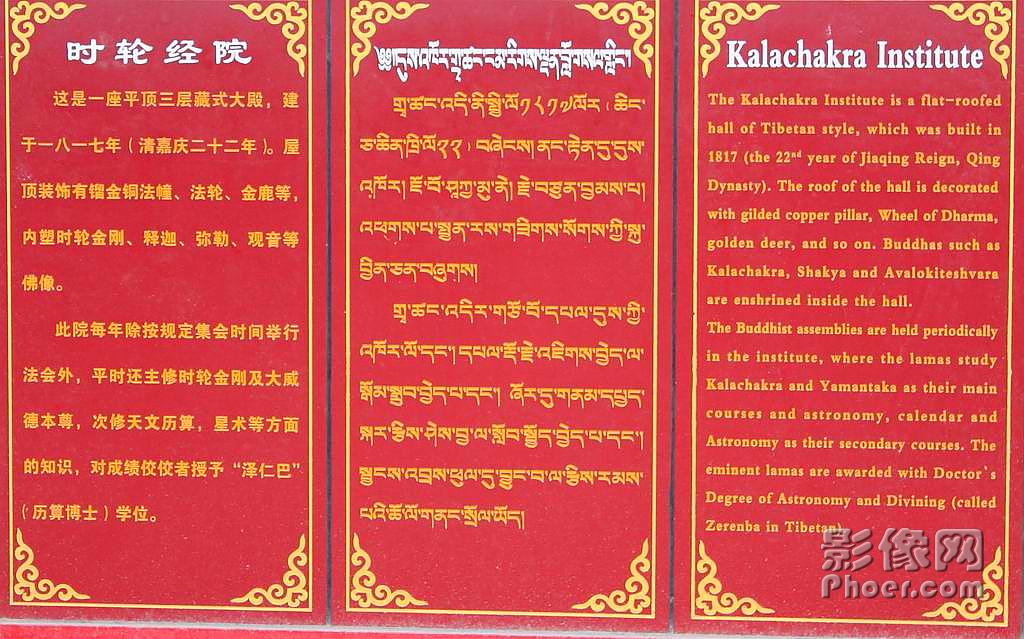 时轮经院
这是一座平顶三层藏式大殿，建
于一八一七年（清嘉庆二十二年）。屋
顶装饰有镏金铜法幢、法轮、金鹿等，
内塑时轮金刚、释迦、弥勒、观音等
佛像。
此院每年除按规定集会时间举行
法会外，平时还主修时轮金刚及大威
德本尊，次修天文历算，星术等方面
的知识，对成绩佼佼者授予“泽仁巴”
（历算博士）学位。
༄༅།།དུས་འཁོར་གྲྭ་ཚང་ངམ་རིགས་ལྡན་བློ་གསལ་གླིང་།
གྲྭ་ཚང་འདི་ནི་སྤྱི་ལོ༡༨༡༧ལོར（ཆིང་
ཅ་ཆིན་ཁྲི་ལོ༢༢）བཞེངས།ནང་རྟེན་དུ་དུས་
འཁོར།ཇོ་བོ་ཤཱཀྱ་མུ་ནེ།རྗེ་བཙུན་བྱམས་པ།
འཕགས་པ་སྤྱན་རས་གཟིགས་སོགས་ཀྱི་སྐུ་
བྲིན་ཅན་བཞུགས།
གྲྭ་ཚང་འདིར་གཙོ་བོ་དཔལ་དུས་ཀྱི་
འཁོར་ལོ་དང་།དཔལ་རྡོ་རྗེ་འཇིགས་བྱེད་ལ་
སྒོམ་སྒྲུབ་བྱེད་པ་དང་། ཞོར་དུ་གནམ་དཔྱད་
སྐར་རྩིས་ཤེས་བྱ་ལ་སློབ་སྦྱོང་བྱེད་པ་དང་།
སྦྱངས་འབྲས་ཕུལ་དུ་བྱུང་བ་ལ་རྩིས་རམས་
པའི་ཆོ་ལོ་གནང་སྲོལ་ཡོད།
Kalachakra Institute
The Kalachakra Institute is a flat-roofed
hall of Tibetan style, which was built in
1817 (the 22nd year of Jiaqing Reign, Qing
Dynasty). The roof of the hall is decorated
with gilded copper pillar, Wheel of Dharma,
golden deer, and so on. Buddhas such as
Kalachakra, Shakya and Avalokiteshvara
are enshrined inside the hall.
The Buddhist assemblies are held periodically
in the institute, where the lamas study
Kalachakra and Yamantaka as their main
courses and astronomy, calendar and
Astronomy as their secondary courses. The
eminent lamas are awarded with Doctor`s
Degree of Astronomy and Divining (called
Zerenba in Tibetan).
影像网
Phoer.com